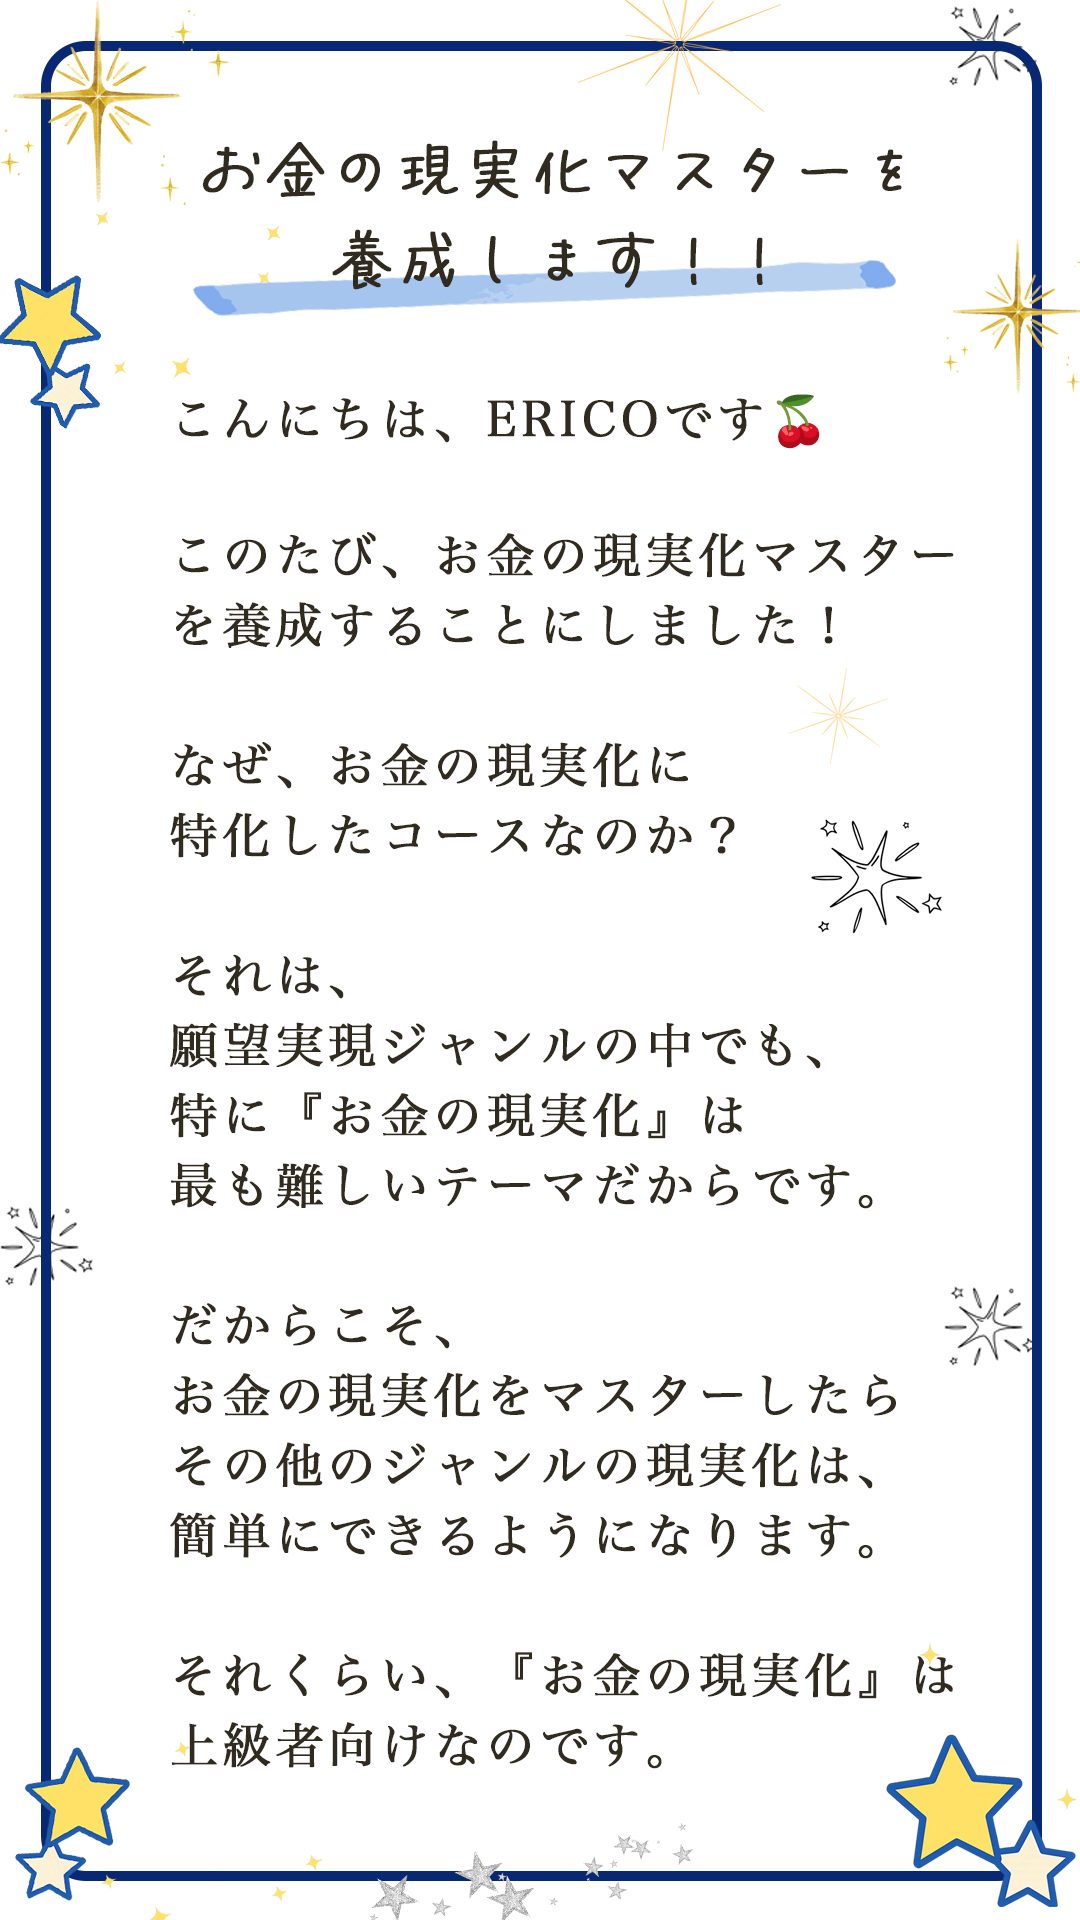 お金の現実化マスターを
養成します！！
こんにちは、ERICOです🍒
このたび、お金の現実化マスター
を養成することにしました！
なぜ、お金の現実化に
特化したコースなのか？
それは、
願望実現ジャンルの中でも、
特に『お金の現実化』は
最も難しいテーマだからです。
だからこそ、
お金の現実化をマスターしたら
その他のジャンルの現実化は、
簡単にできるようになります。
それくらい、『お金の現実化』は
上級者向けなのです。